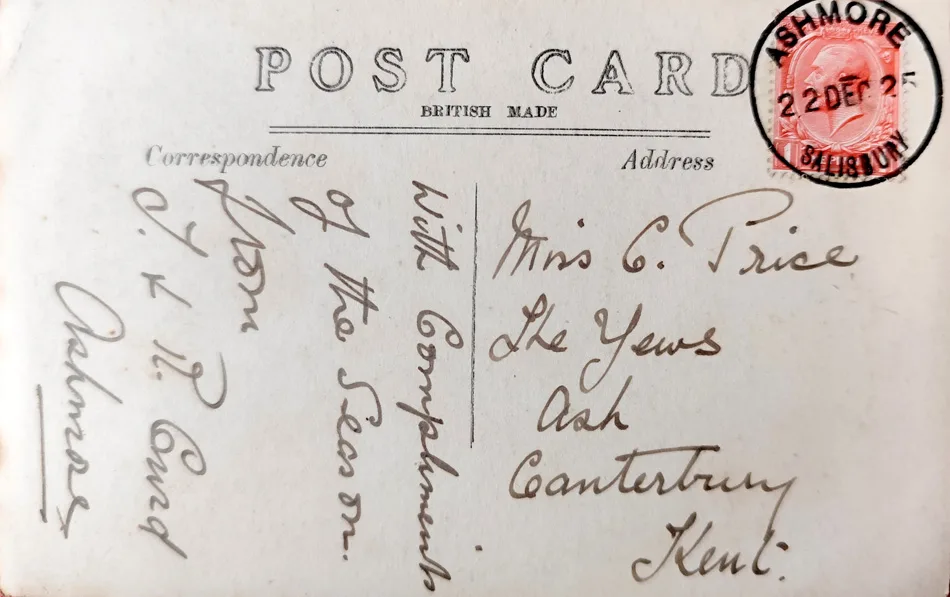 POST CARD
BRITISH MADE
Correspondence
Address
ASHMORE
22 DEC 25
SALISBURY
With Compliments
of the Season.
from
&
R. Curd
Ashmore
Miss C. Price
The Yews
Ash
Canterbury
Kent.